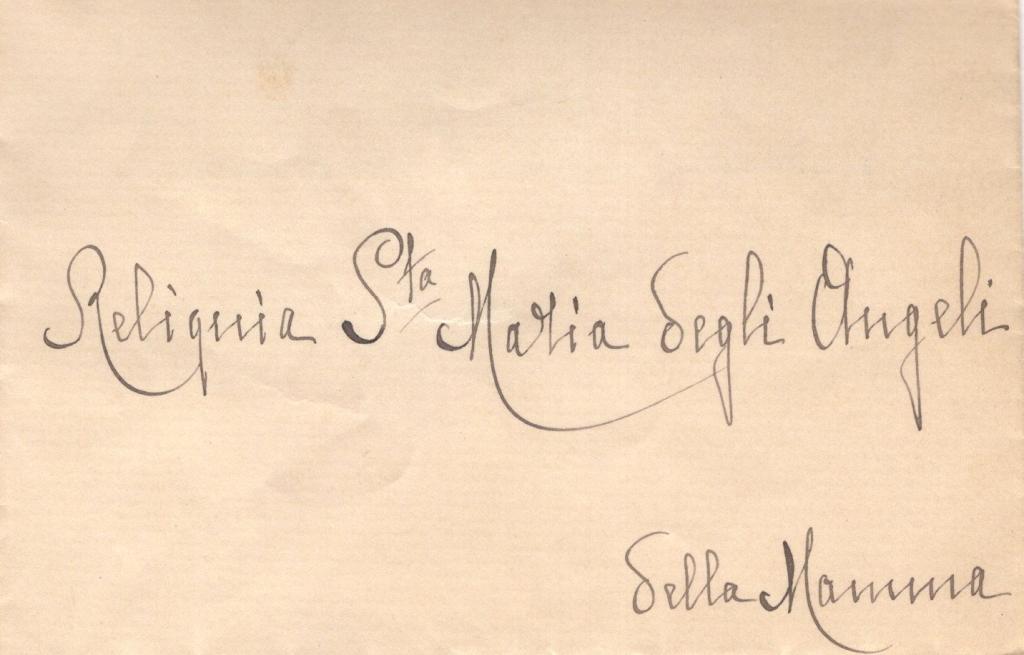 Reliquia Sta Maria degli Angeli
della Mamma